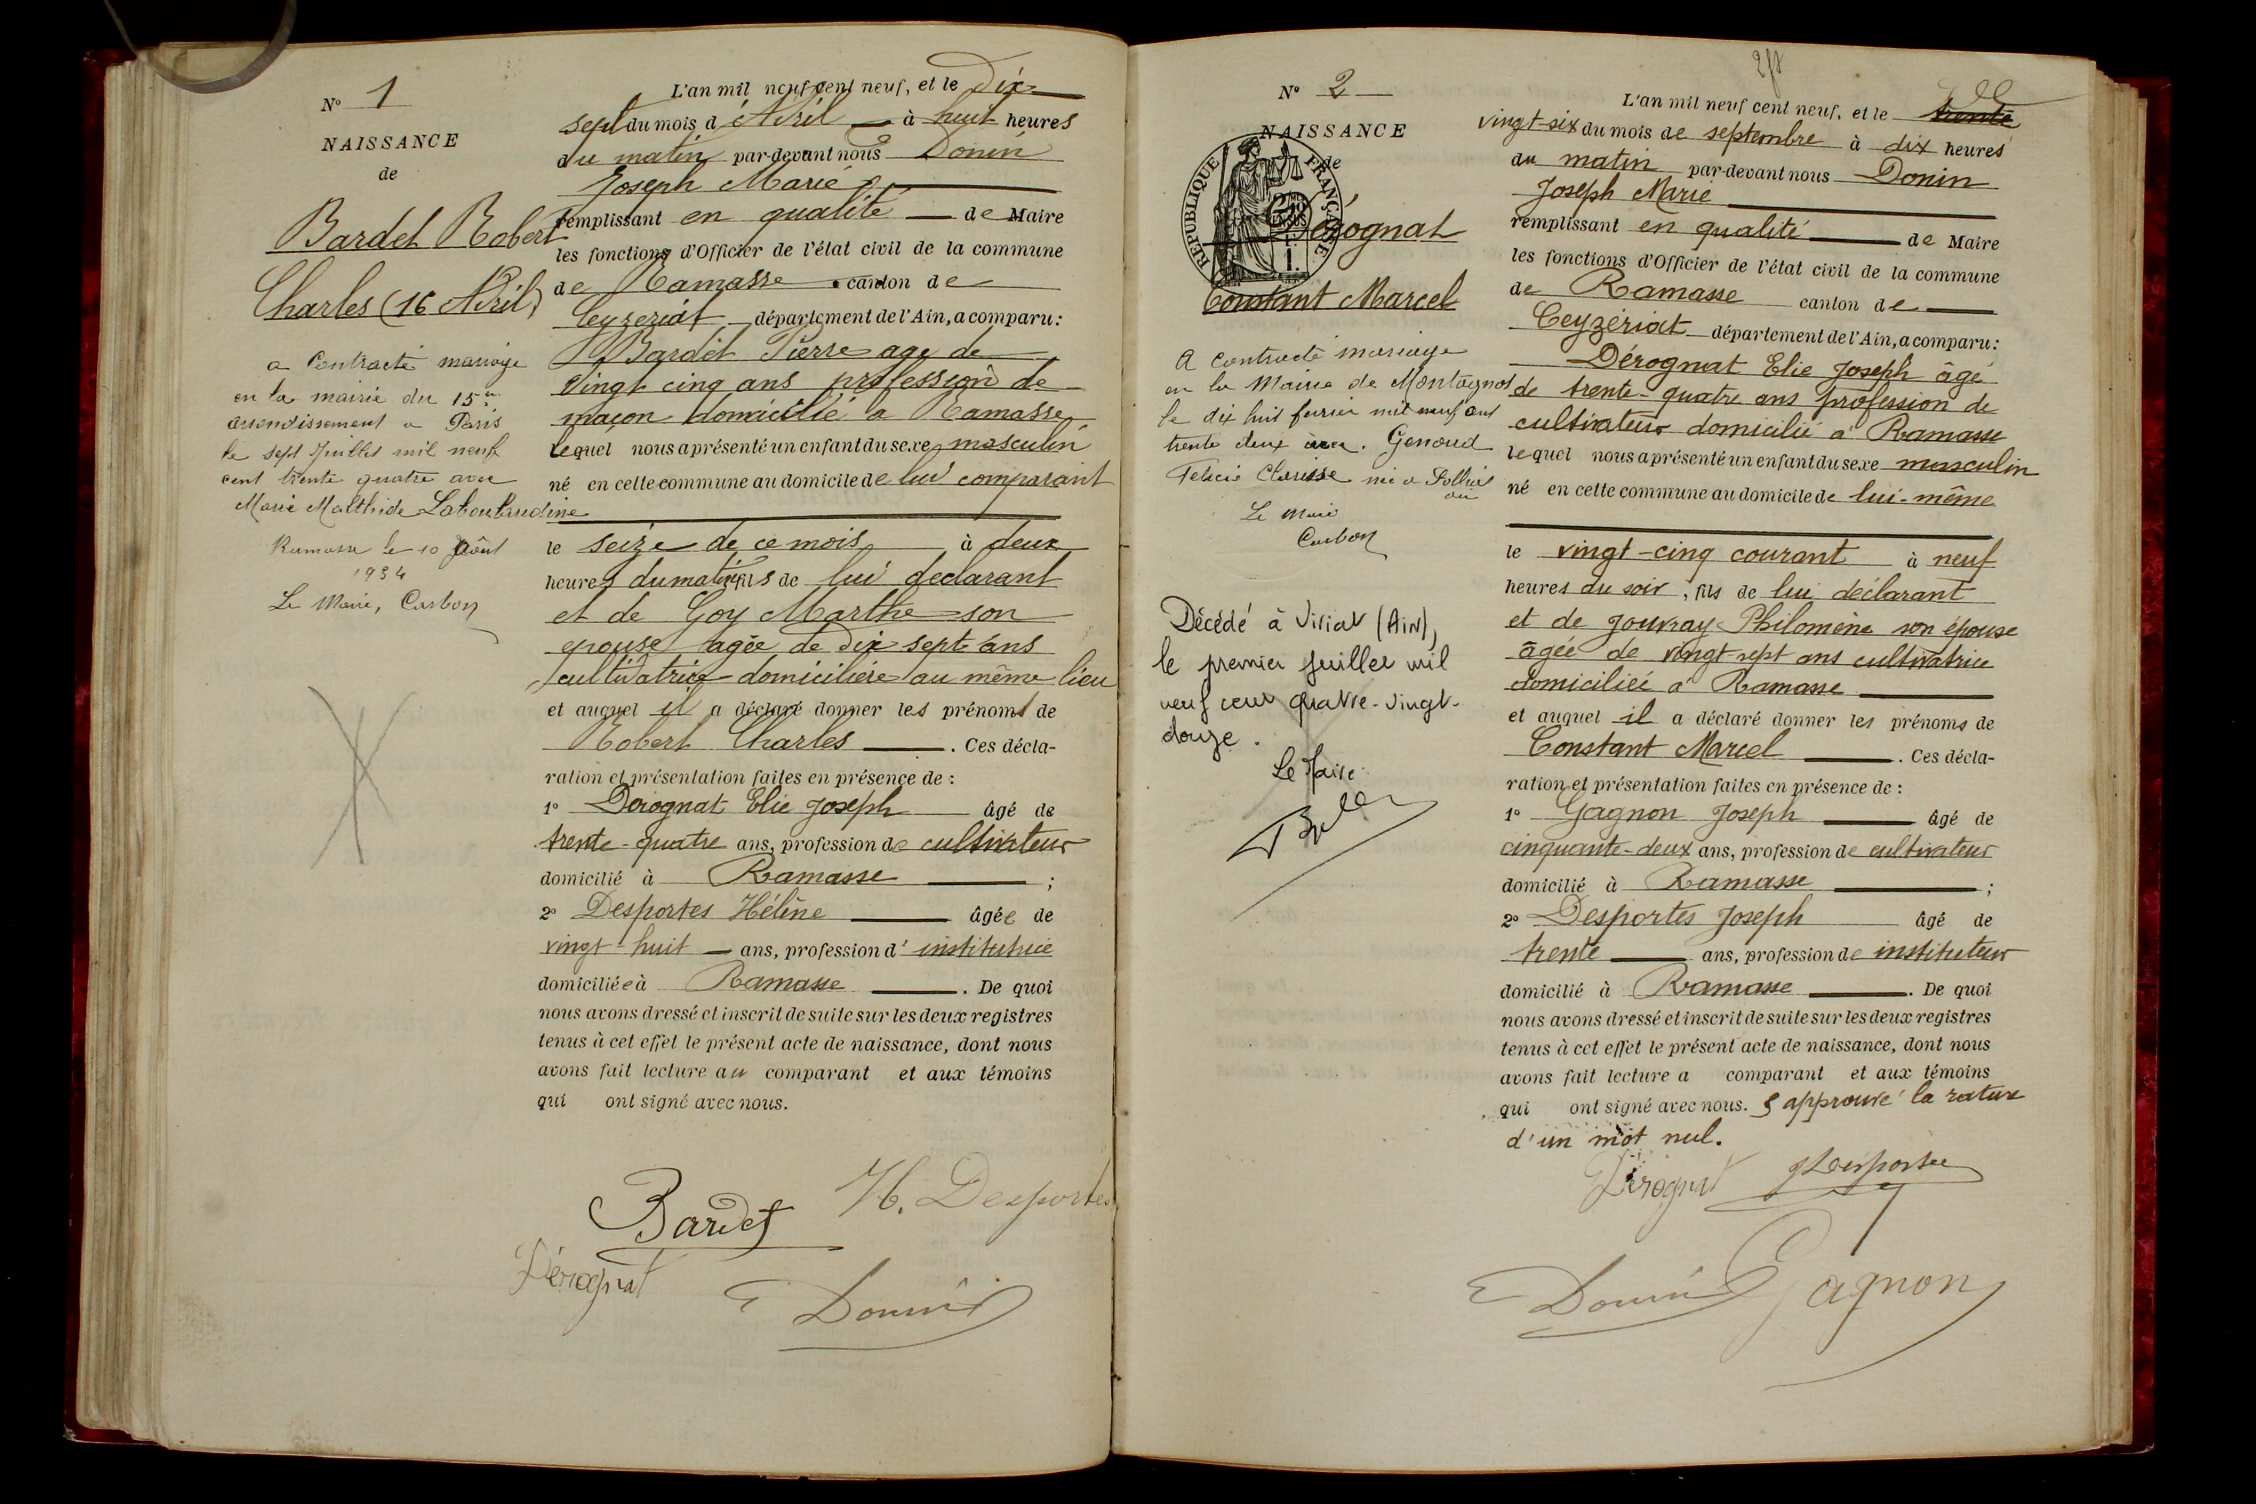 N° 1
NAISSANCE
de
Bardet Robert
Charles (16 Avril)
a contracté mariage
en la mairie du 15e
arrondissement a Paris
le sept Juillet mil neuf
cent trente quatre avec
Marie Malthide
Ramasse le 10 Août
1934
Le Maire, Carbon
L'an mil neuf cent neuf, et le Dix
sept du mois d'Avril à huit heures
du matin par-devant nous Donin
Joseph Marie
remplissant en qualité de Maire
les fonctions d'Officier de l'état civil de la commune
de Ramasse canton de
Ceyzeriat département de l'Ain, a comparu :
Bardet Pierre age de
vingt cinq ans profession de
maçon domicilié a Ramasse
lequel nous a présenté un enfant du sexe masculin
né en cette commune au domicile de lui comparant
le seize de ce mois à deux
heures du matin fils de lui declarant
et de Goy Marthe son
epouse agée de Dix sept ans
cultivatrice domiciliere au même lieu
et auquel il a déclaré donner les prénoms de
Robert Charles. Ces décla-
ration et présentation faites en présence de :
1° Dérognat Elie Joseph âgé de
trente-quatre ans, profession de cultivateur
domicilié à Ramasse ;
2° Desportes Hélène âgée de
vingt-huit ans, profession d'institutrice
domiciliée à Ramasse. De quoi
nous avons dressé et inscrit de suite sur les deux registres
tenus à cet effet le présent acte de naissance, dont nous
avons fait lecture au comparant et aux témoins
qui ont signé avec nous.
Bardet H. Desportes
Dérognat Donin
N° 2
NAISSANCE
de
REPUBLIQUE FRANÇAISE
Dérognat
Constant Marcel
A contracté mariage
en la Mairie de Montagnat
le dix huit fevrier mil neuf cent
trente deux avec Genoud
Felicie Clarisse née a
Le Maire
Carbon
Décédé à Viriat (Ain),
le premier juillet mil
neuf cent quatre-vingt-
douze.
Le Maire
L'an mil neuf cent neuf, et le trente
vingt-six du mois de septembre à dix heures
du matin par-devant nous Donin
Joseph Marie
remplissant en qualité de Maire
les fonctions d'Officier de l'état civil de la commune
de Ramasse canton de
Ceyzériat département de l'Ain, a comparu :
Dérognat Elie Joseph âgé
de trente-quatre ans profession de
cultivateur domicilié à Ramasse
lequel nous a présenté un enfant du sexe masculin
né en cette commune au domicile de lui-même
le vingt-cinq courant à neuf
heures du soir, fils de lui déclarant
et de Jouvray Philomène son épouse
âgée de vingt-sept ans cultivatrice
domiciliée à Ramasse
et auquel il a déclaré donner les prénoms de
Constant Marcel. Ces décla-
ration et présentation faites en présence de :
1° Gagnon Joseph âgé de
cinquante-deux ans, profession de cultivateur
domicilié à Ramasse ;
2° Desportes Joseph âgé de
trente ans, profession de instituteur
domicilié à Ramasse. De quoi
nous avons dressé et inscrit de suite sur les deux registres
tenus à cet effet le présent acte de naissance, dont nous
avons fait lecture a comparant et aux témoins
qui ont signé avec nous. approuvé la rature
d'un mot nul.
Dérognat J Desportes
Donin Gagnon